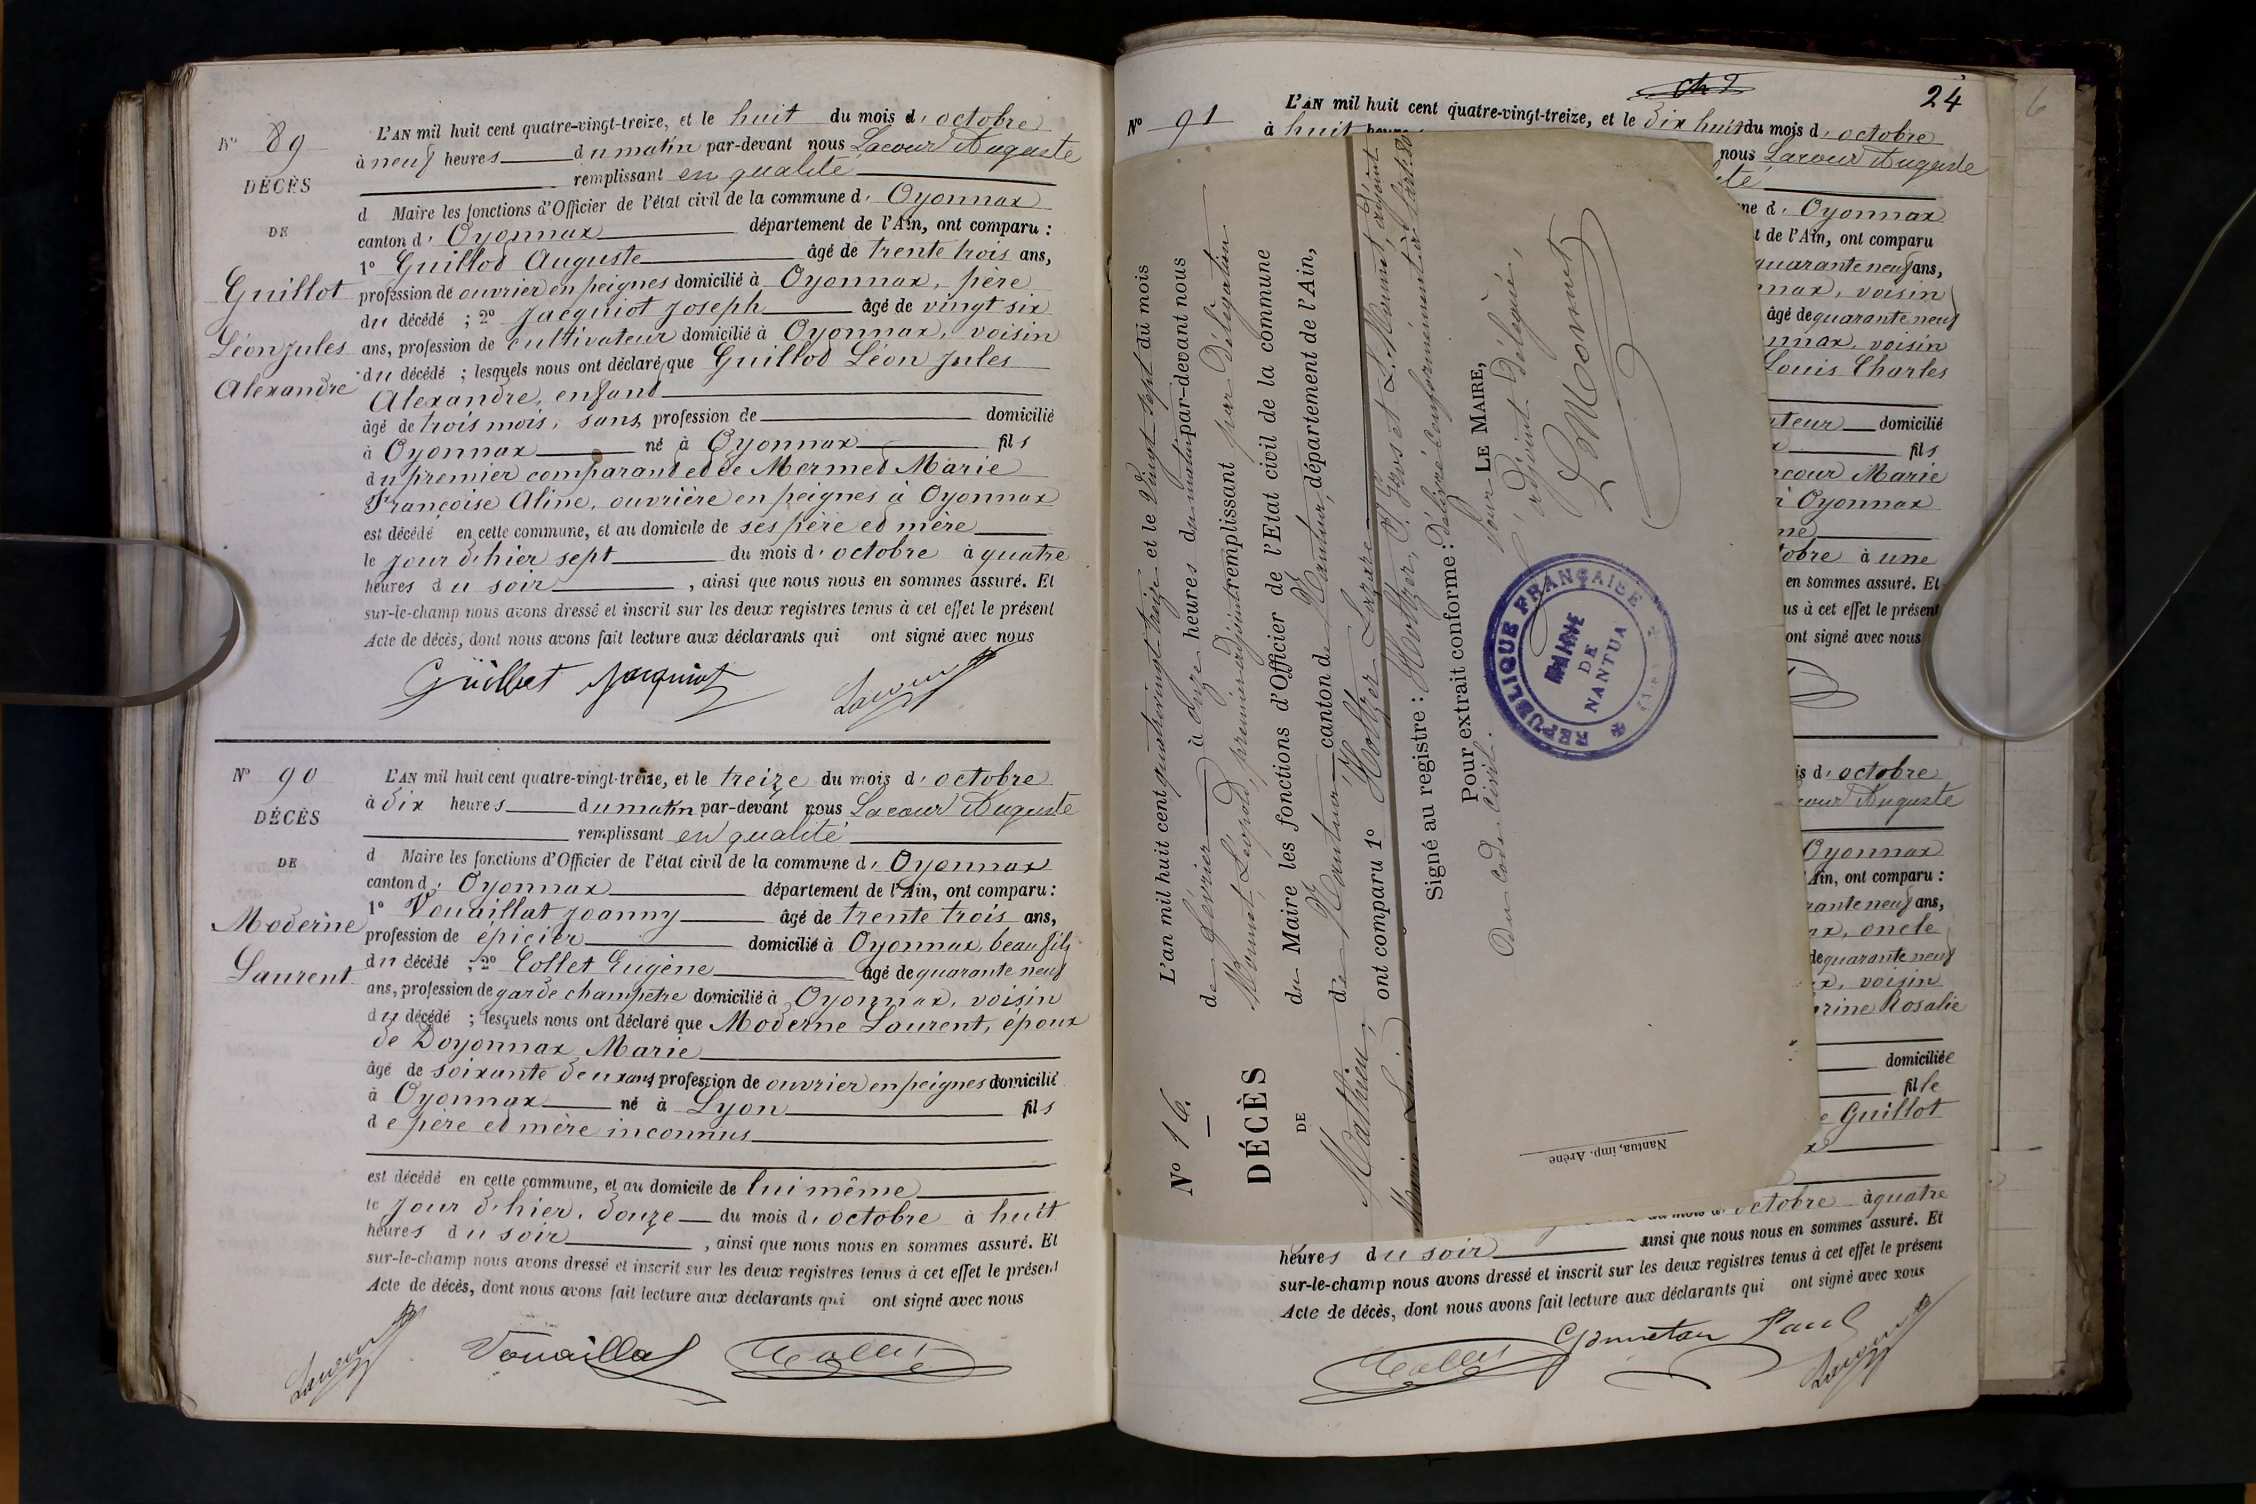 N° 89
DÉCÈS
DE
Guillot
Léon Jules
Alexandre
L'AN mil huit cent quatre-vingt-treize, et le huit du mois d'octobre
à neuf heures du matin par-devant nous Lacour Auguste
remplissant en qualité
d Maire les fonctions d'Officier de l'état civil de la commune d'Oyonnax
canton d'Oyonnax département de l'Ain, ont comparu :
1° Guillot Auguste âgé de trente trois ans,
profession de ouvrier en peignes domicilié à Oyonnax, père
du décédé ; 2° Jacquiot Joseph âgé de vingt six
ans, profession de cultivateur domicilié à Oyonnax, voisin
du décédé ; lesquels nous ont déclaré que Guillot Léon Jules
Alexandre, enfant
âgé de trois mois, sans profession de domicilié
à Oyonnax né à Oyonnax fils
du premier comparant et de Mermet Marie
Françoise Aline, ouvrière en peignes à Oyonnax
est décédé en cette commune, et au domicile de ses père et mère
le jour d'hier sept du mois d'octobre à quatre
heures du soir , ainsi que nous nous en sommes assuré. Et
sur-le-champ nous avons dressé et inscrit sur les deux registres tenus à cet effet le présent
Acte de décès, dont nous avons fait lecture aux déclarants qui ont signé avec nous
Guillot Jacquiot Lacour
N° 90
DÉCÈS
DE
Moderne
Laurent
L'AN mil huit cent quatre-vingt-treize, et le treize du mois d'octobre
à dix heures du matin par-devant nous Lacour Auguste
remplissant en qualité
d Maire les fonctions d'Officier de l'état civil de la commune d'Oyonnax
canton d'Oyonnax département de l'Ain, ont comparu :
1° Vouaillat Joanny âgé de trente trois ans,
profession de épicier domicilié à Oyonnax, beau fils
du décédé ; 2° Collet Eugène âgé de quarante neuf
ans, profession de garde champêtre domicilié à Oyonnax, voisin
du décédé ; lesquels nous ont déclaré que Moderne Laurent, époux
de Doyonnax Marie
âgé de soixante deux ans profession de ouvrier en peignes domicilié
à Oyonnax né à Lyon fils
de père et mère inconnus
est décédé en cette commune, et au domicile de lui même
le jour d'hier, douze du mois d'octobre à huit
heures du soir , ainsi que nous nous en sommes assuré. Et
sur-le-champ nous avons dressé et inscrit sur les deux registres tenus à cet effet le présent
Acte de décès, dont nous avons fait lecture aux déclarants qui ont signé avec nous
Lacour Vouaillat Collet
24
6
N° 91
L'AN mil huit cent quatre-vingt-treize, et le dix huit du mois d'octobre
à huit heures
nous Lacour Auguste
d'Oyonnax
de l'Ain, ont comparu
quarante neuf ans,
voisin
âgé de quarante neuf
voisin
Louis Charles
domicilié
fils
Marie
à Oyonnax
à une
en sommes assuré. Et
à cet effet le présent
ont signé avec nous
N° 16.
DÉCÈS
DE
Mathieu
L'an mil huit cent quatrevingt treize et le vingt sept du mois
de février à onze heures du matin par-devant nous
Mounet, Léopold, premier adjoint remplissant par délégation
du Maire les fonctions d'Officier de l'Etat civil de la commune
de Nantua canton de Nantua, département de l'Ain,
ont comparu 1° Holtzer Lazare
Signé au registre : Holtzer,
Pour extrait conforme : Délivré conformément à l'art. 80
du code civil.
Pour LE MAIRE,
l'adjoint délégué,
L Mounet
RÉPUBLIQUE FRANÇAISE
MAIRIE
DE
NANTUA
(AIN)
Nantua, imp. Arène
d'octobre
Lacour Auguste
Oyonnax
Ain, ont comparu :
quarante neuf ans,
oncle
de quarante neuf
voisin
Rosalie
domiciliée
fille
Guillot
octobre à quatre
heures du soir ainsi que nous nous en sommes assuré. Et
sur-le-champ nous avons dressé et inscrit sur les deux registres tenus à cet effet le présent
Acte de décès, dont nous avons fait lecture aux déclarants qui ont signé avec nous
Collet Paul Lacour